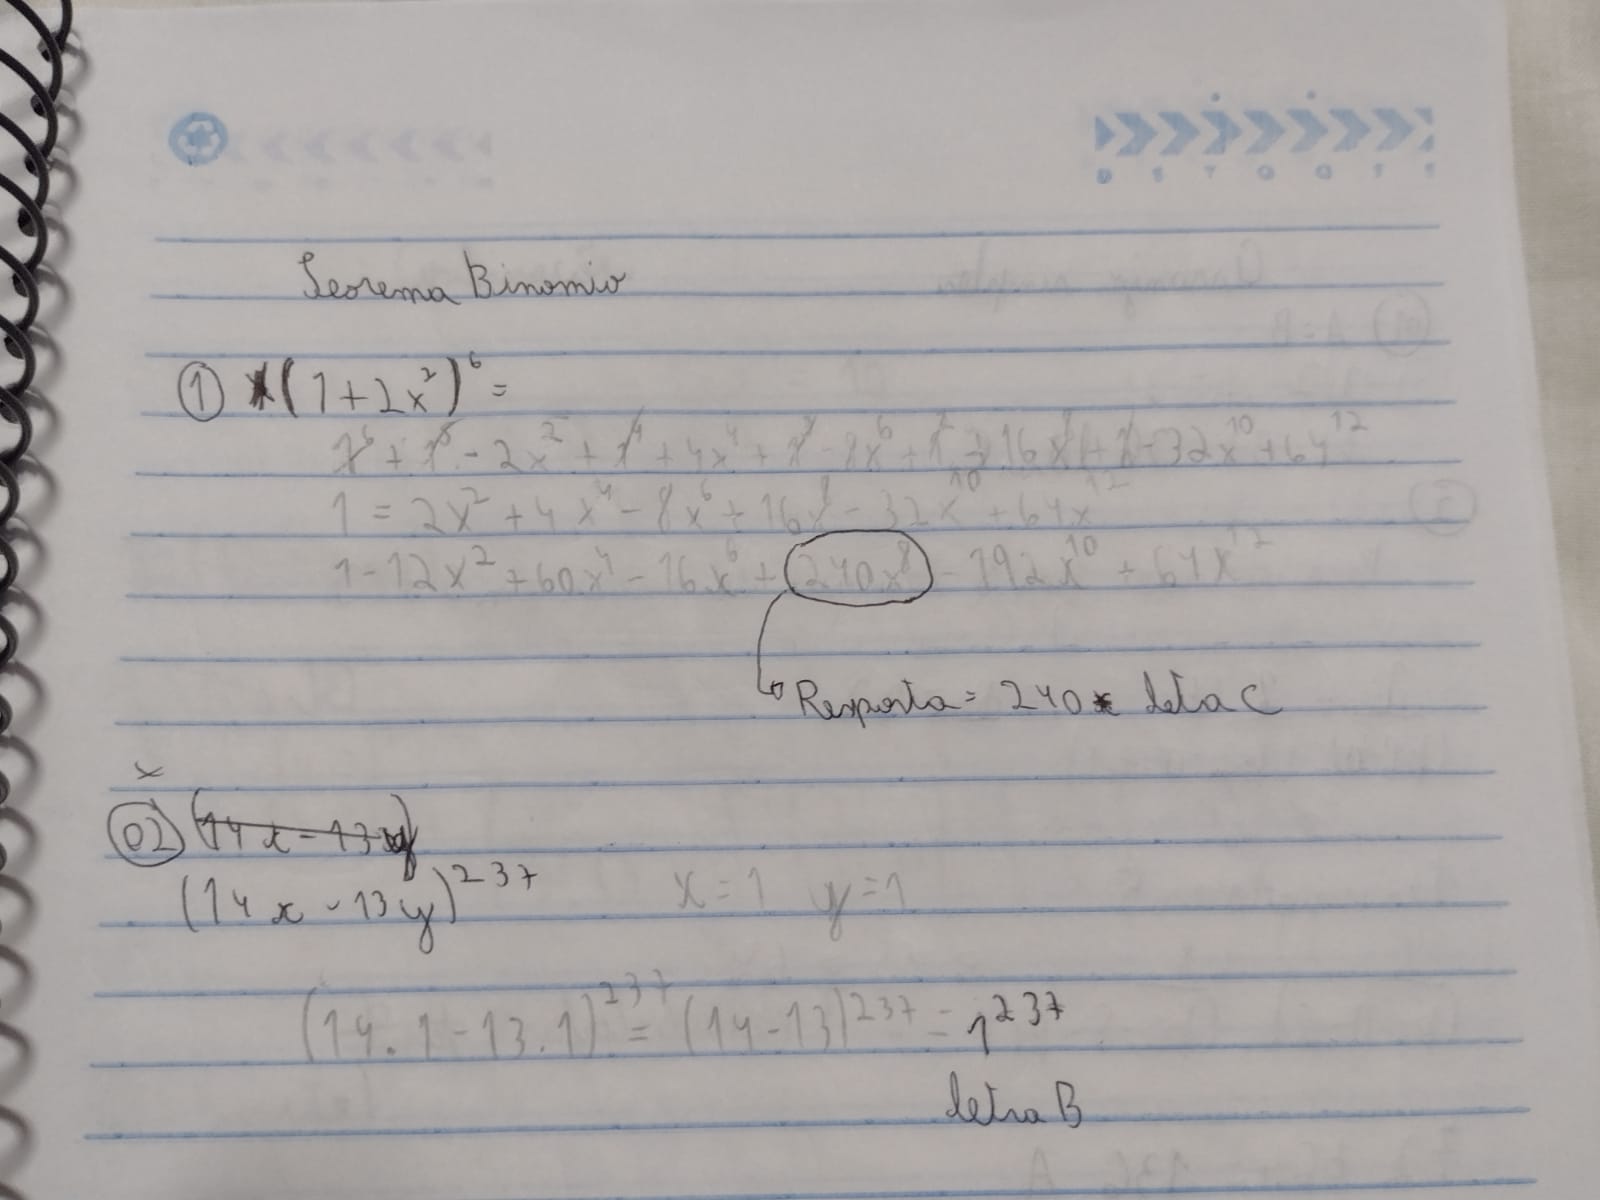 Teorema Binomio
① (1+2x²)⁶ =
1⁶ + 1⁵ - 2x² + 1⁴ + 4x⁴ + 1³ - 8x⁶ + 1² + 16x⁸ + 1 - 32x¹⁰ + 64¹²
1 = 2x² + 4x⁴ - 8x⁶ + 16x⁸ - 32x¹⁰ + 64x¹²
1 - 12x² + 60x⁴ - 16x⁶ + 240x⁸ - 192x¹⁰ + 64x¹²
Resposta = 240 letra C
x
02) (14x - 13y)
(14x - 13y)²³⁷ x = 1 y = 1
(14.1 - 13.1)²³⁷ = (14 - 13)²³⁷ = 1²³⁷
letra B